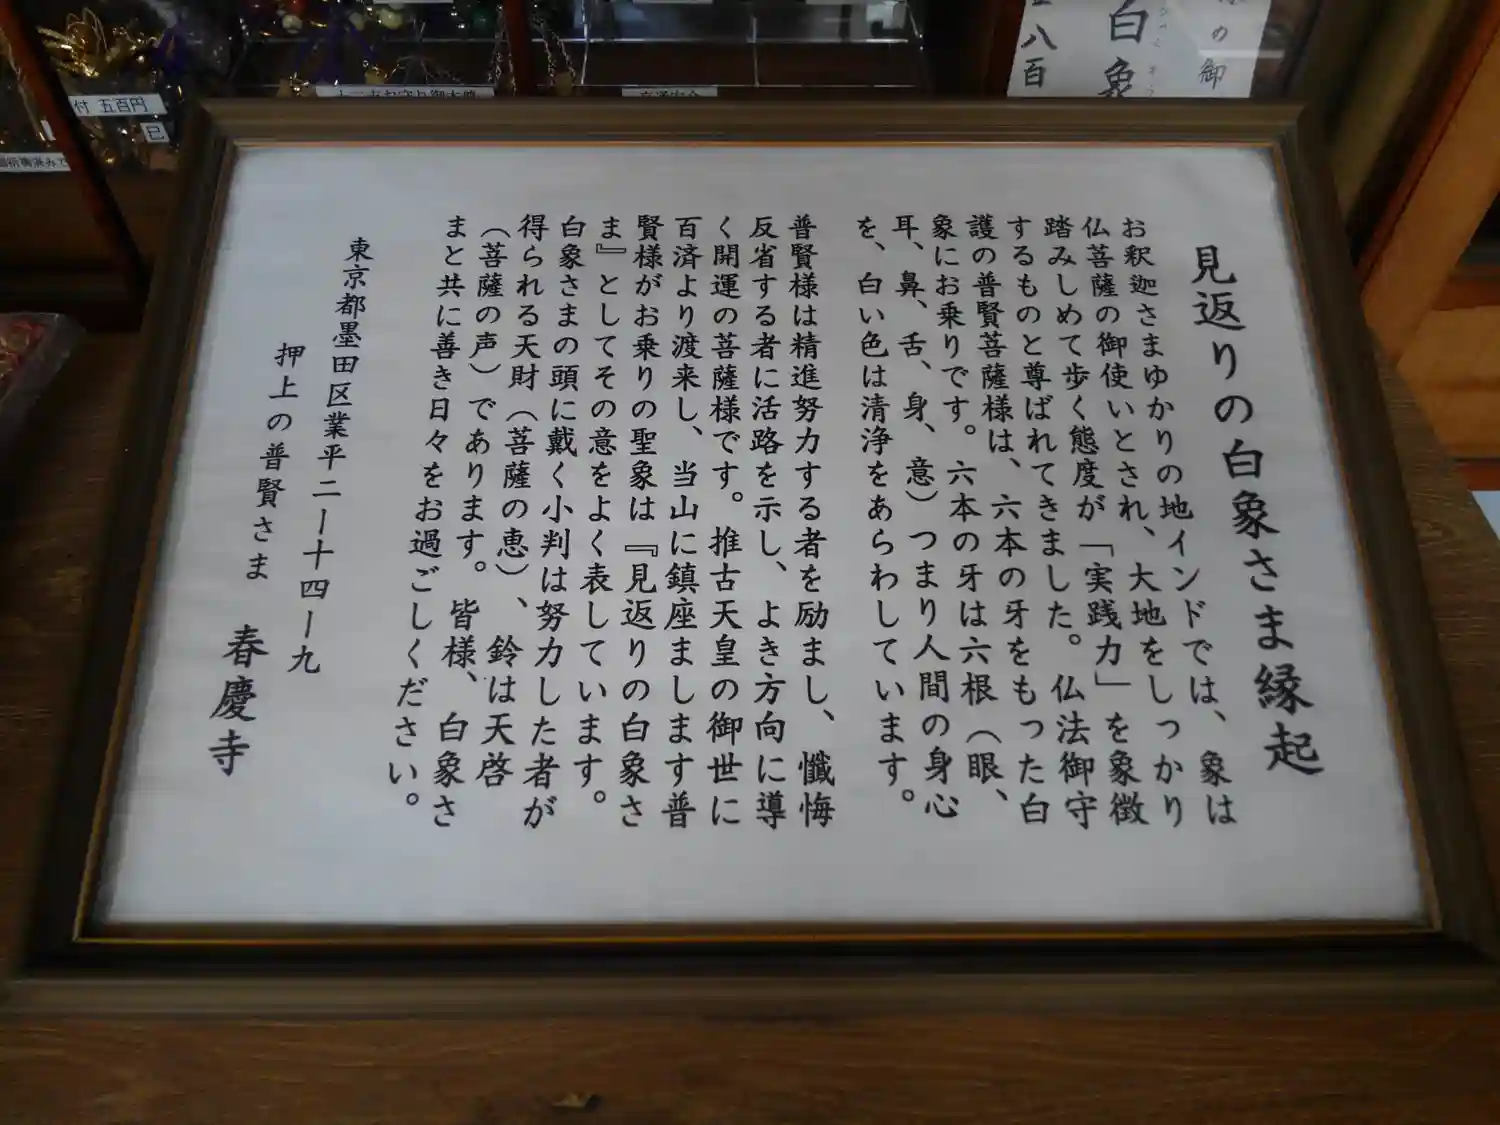 見返りの白象さま縁起
お釈迦さまゆかりの地インドでは、象は
仏菩薩の御使いとされ、大地をしっかり
踏みしめて歩く態度が「実践力」を象徴
するものと尊ばれてきました。仏法御守
護の普賢菩薩様は、六本の牙をもった白
象にお乗りです。六本の牙は六根（眼、
耳、鼻、舌、身、意）つまり人間の身心
を、白い色は清浄をあらわしています。
普賢様は精進努力する者を励まし、懺悔
反省する者に活路を示し、よき方向に導
く開運の菩薩様です。推古天皇の御世に
百済より渡来し、当山に鎮座まします普
賢様がお乗りの聖象は『見返りの白象さ
ま』としてその意をよく表しています。
白象さまの頭に戴く小判は努力した者が
得られる天財（菩薩の恵）、鈴は天啓
（菩薩の声）であります。皆様、白象さ
まと共に善き日々をお過ごしください。
東京都墨田区業平二ー十四ー九
押上の普賢さま 春慶寺
の御
白象
八百
付 五百円
巳